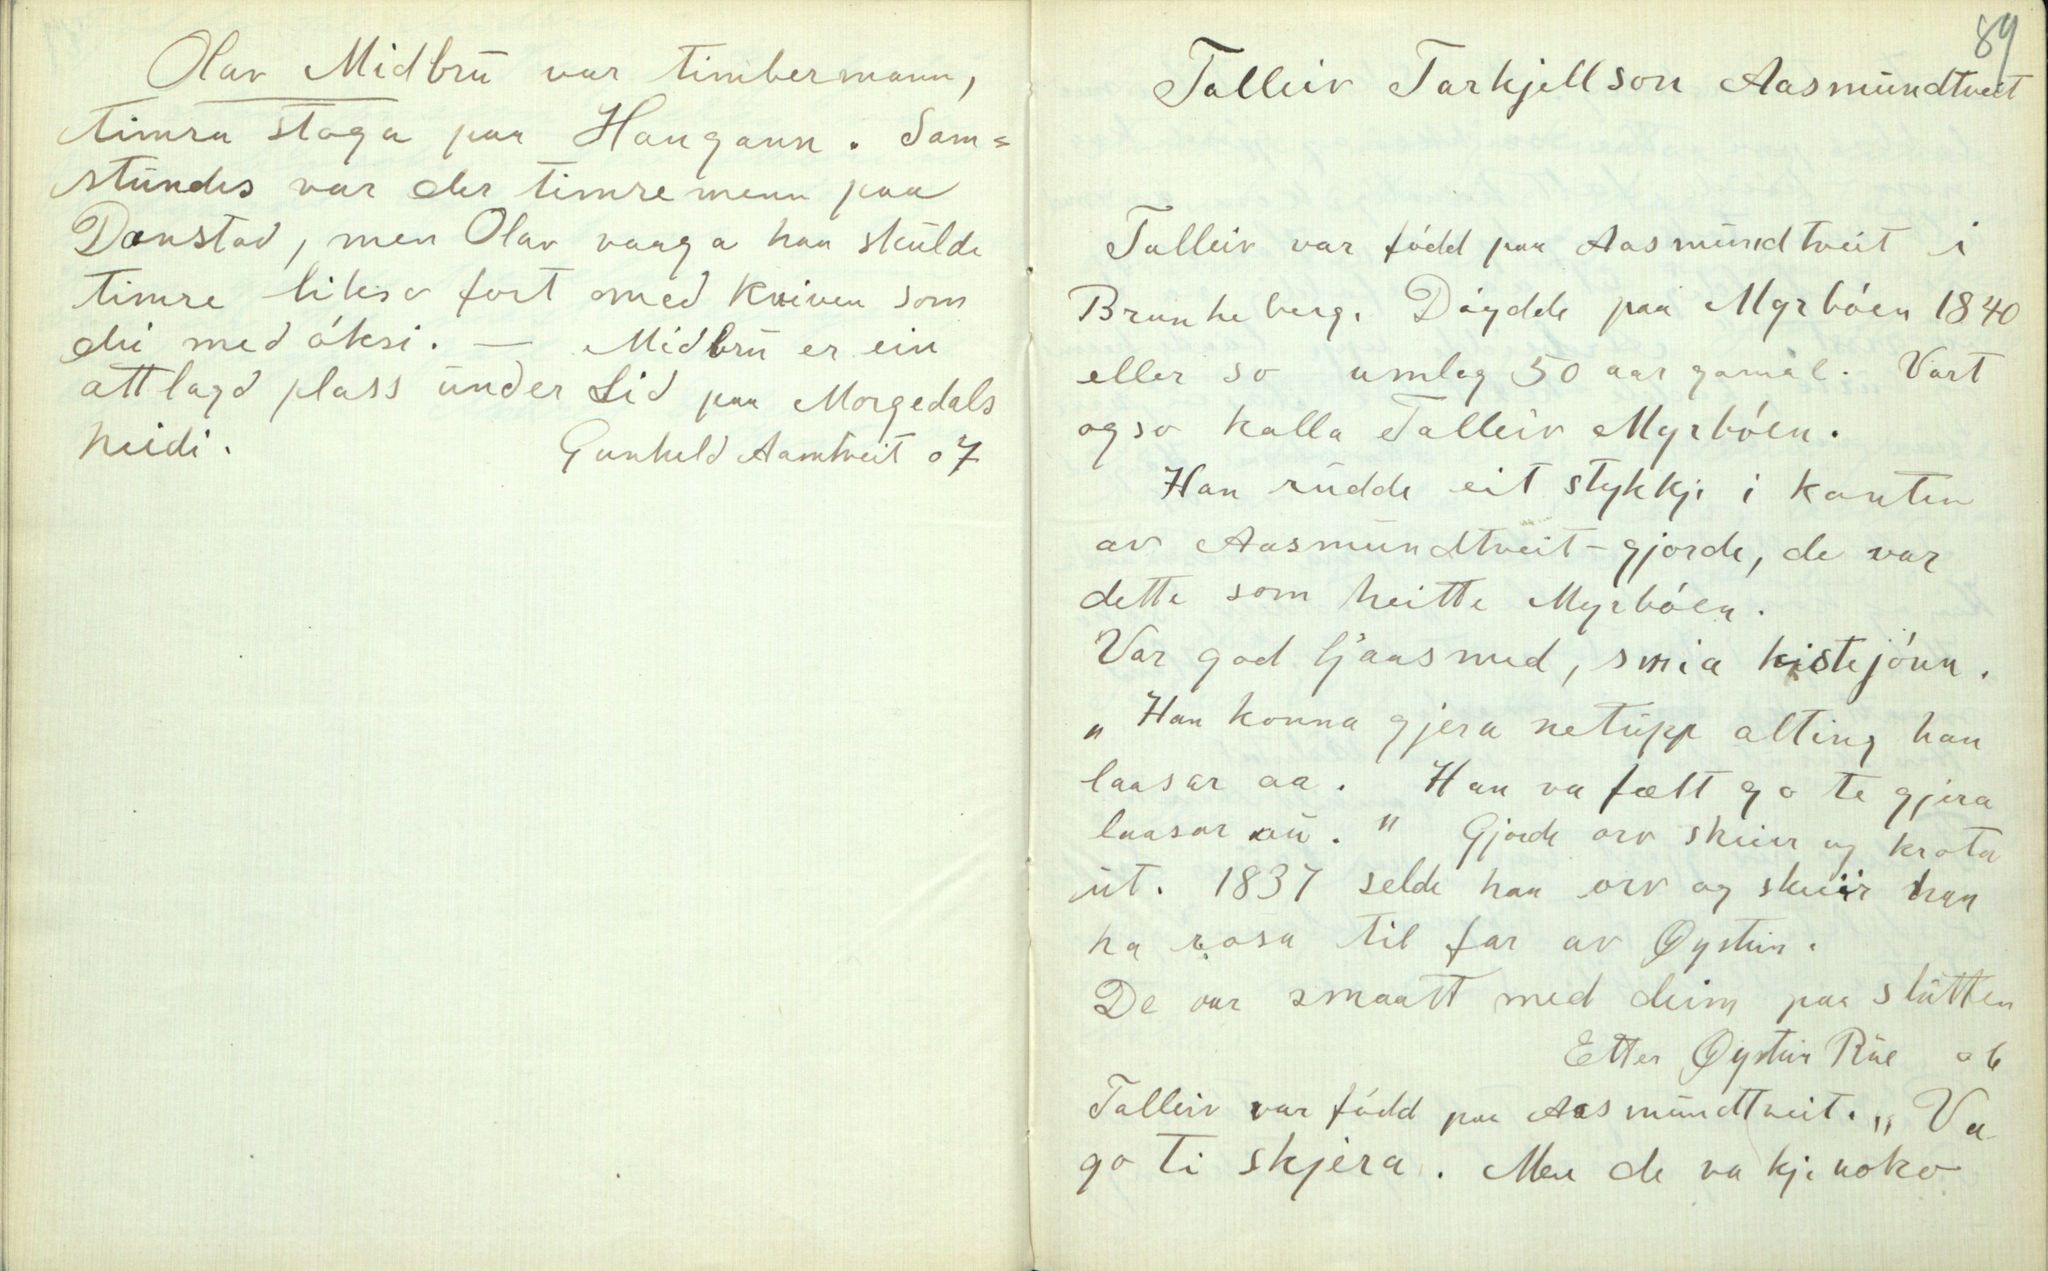 Olav Midbrū var timbermann,
timra stoga paa Haugann. Sam=
stūndes var der timremenn paa
Dånstad, men Olav vaaga han skūlde
timre likso fort med kniven som
dei med óksi. — Midbrū er ein
attlagd plass ūnder Lid paa Morgedals
heidi. Gunhild Aamtveit 07
89
Talleiv Tarkjellson Aasmūndtveit
Talleiv var fódd paa Aasmūndtveit i
Brunkeberg. Dóydde paa Myrbóen 1840
eller so umlag 50 aar gamal. Vart
ogso kalla Talleiv Myrbóen.
Han rūdde eit stykkje i kanten
av Aasmūndtveit-gjorde, de var
dette som heitte Myrbóen.
Var god ljaasmed, smia kistejónn.
"Han konna gjera netūpp alting han
laasar aa. Han va fælt go te gjera
laasar aū." Gjorde orv skeier og krota
ūt. 1837 selde han orv og skeiir han
ha rosa til far av Øystein.
De var smaatt med deim paa slūtten
Etter Øystein Rūe 06
Talleiv var fódd paa Aasmūndtveit. "Va
go ti skjera. Men de va kje noko